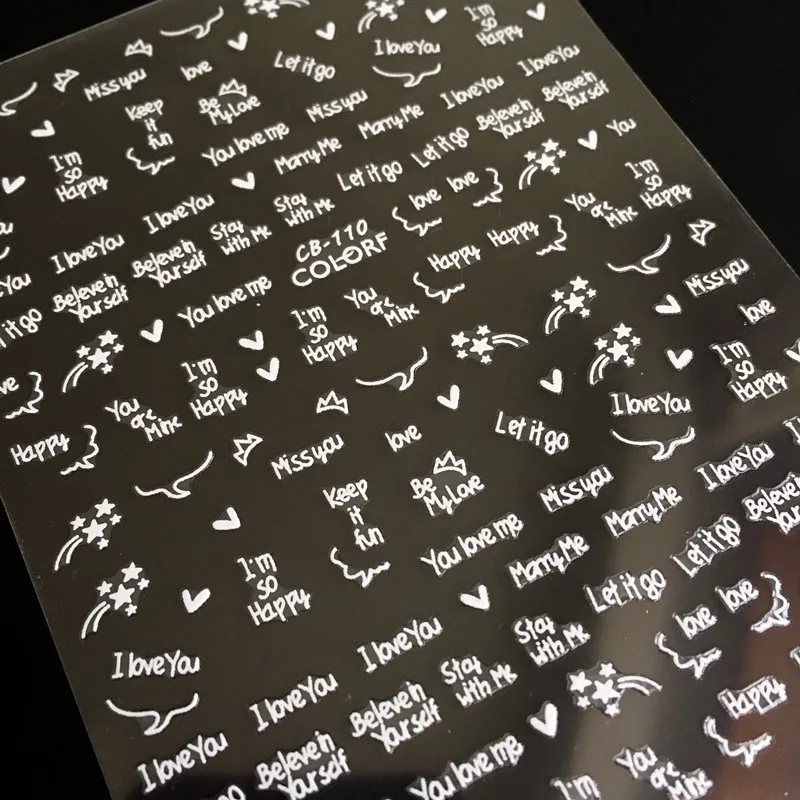 I'm
so
Happy
I love You
Let it go
love
Miss you
I love You
I love You
Miss you
Be
My Love
Keep
it
fun
Beleve in
Yourself
Beleve in
Yourself
Marry Me
You love me
You
Let it go
Let it go
Marry Me
I'm
so
Happy
I'm
so
Happy
You
are
Mine
love
love
Stay
with Me
Stay
with Me
I love You
I love You
Happy
Happy
CB-110
COLORF
Beleve in
Yourself
Beleve in
Yourself
Miss you
love
You
are
Mine
I'm
so
Happy
You love me
it go
I'm
so
Happy
I'm
so
Happy
You
are
Mine
Happy
I love You
Let it go
love
Miss you
I love You
Miss you
Be
My Love
Keep
it
fun
Marry Me
Marry Me
You love me
Let it go
Let it go
I'm
so
Happy
love
love
Stay
with Me
Stay
with Me
I love You
I love You
I love You
Happy
Beleve in
Yourself
Beleve in
Yourself
I love You
You love me
You
are
Mine
I'm